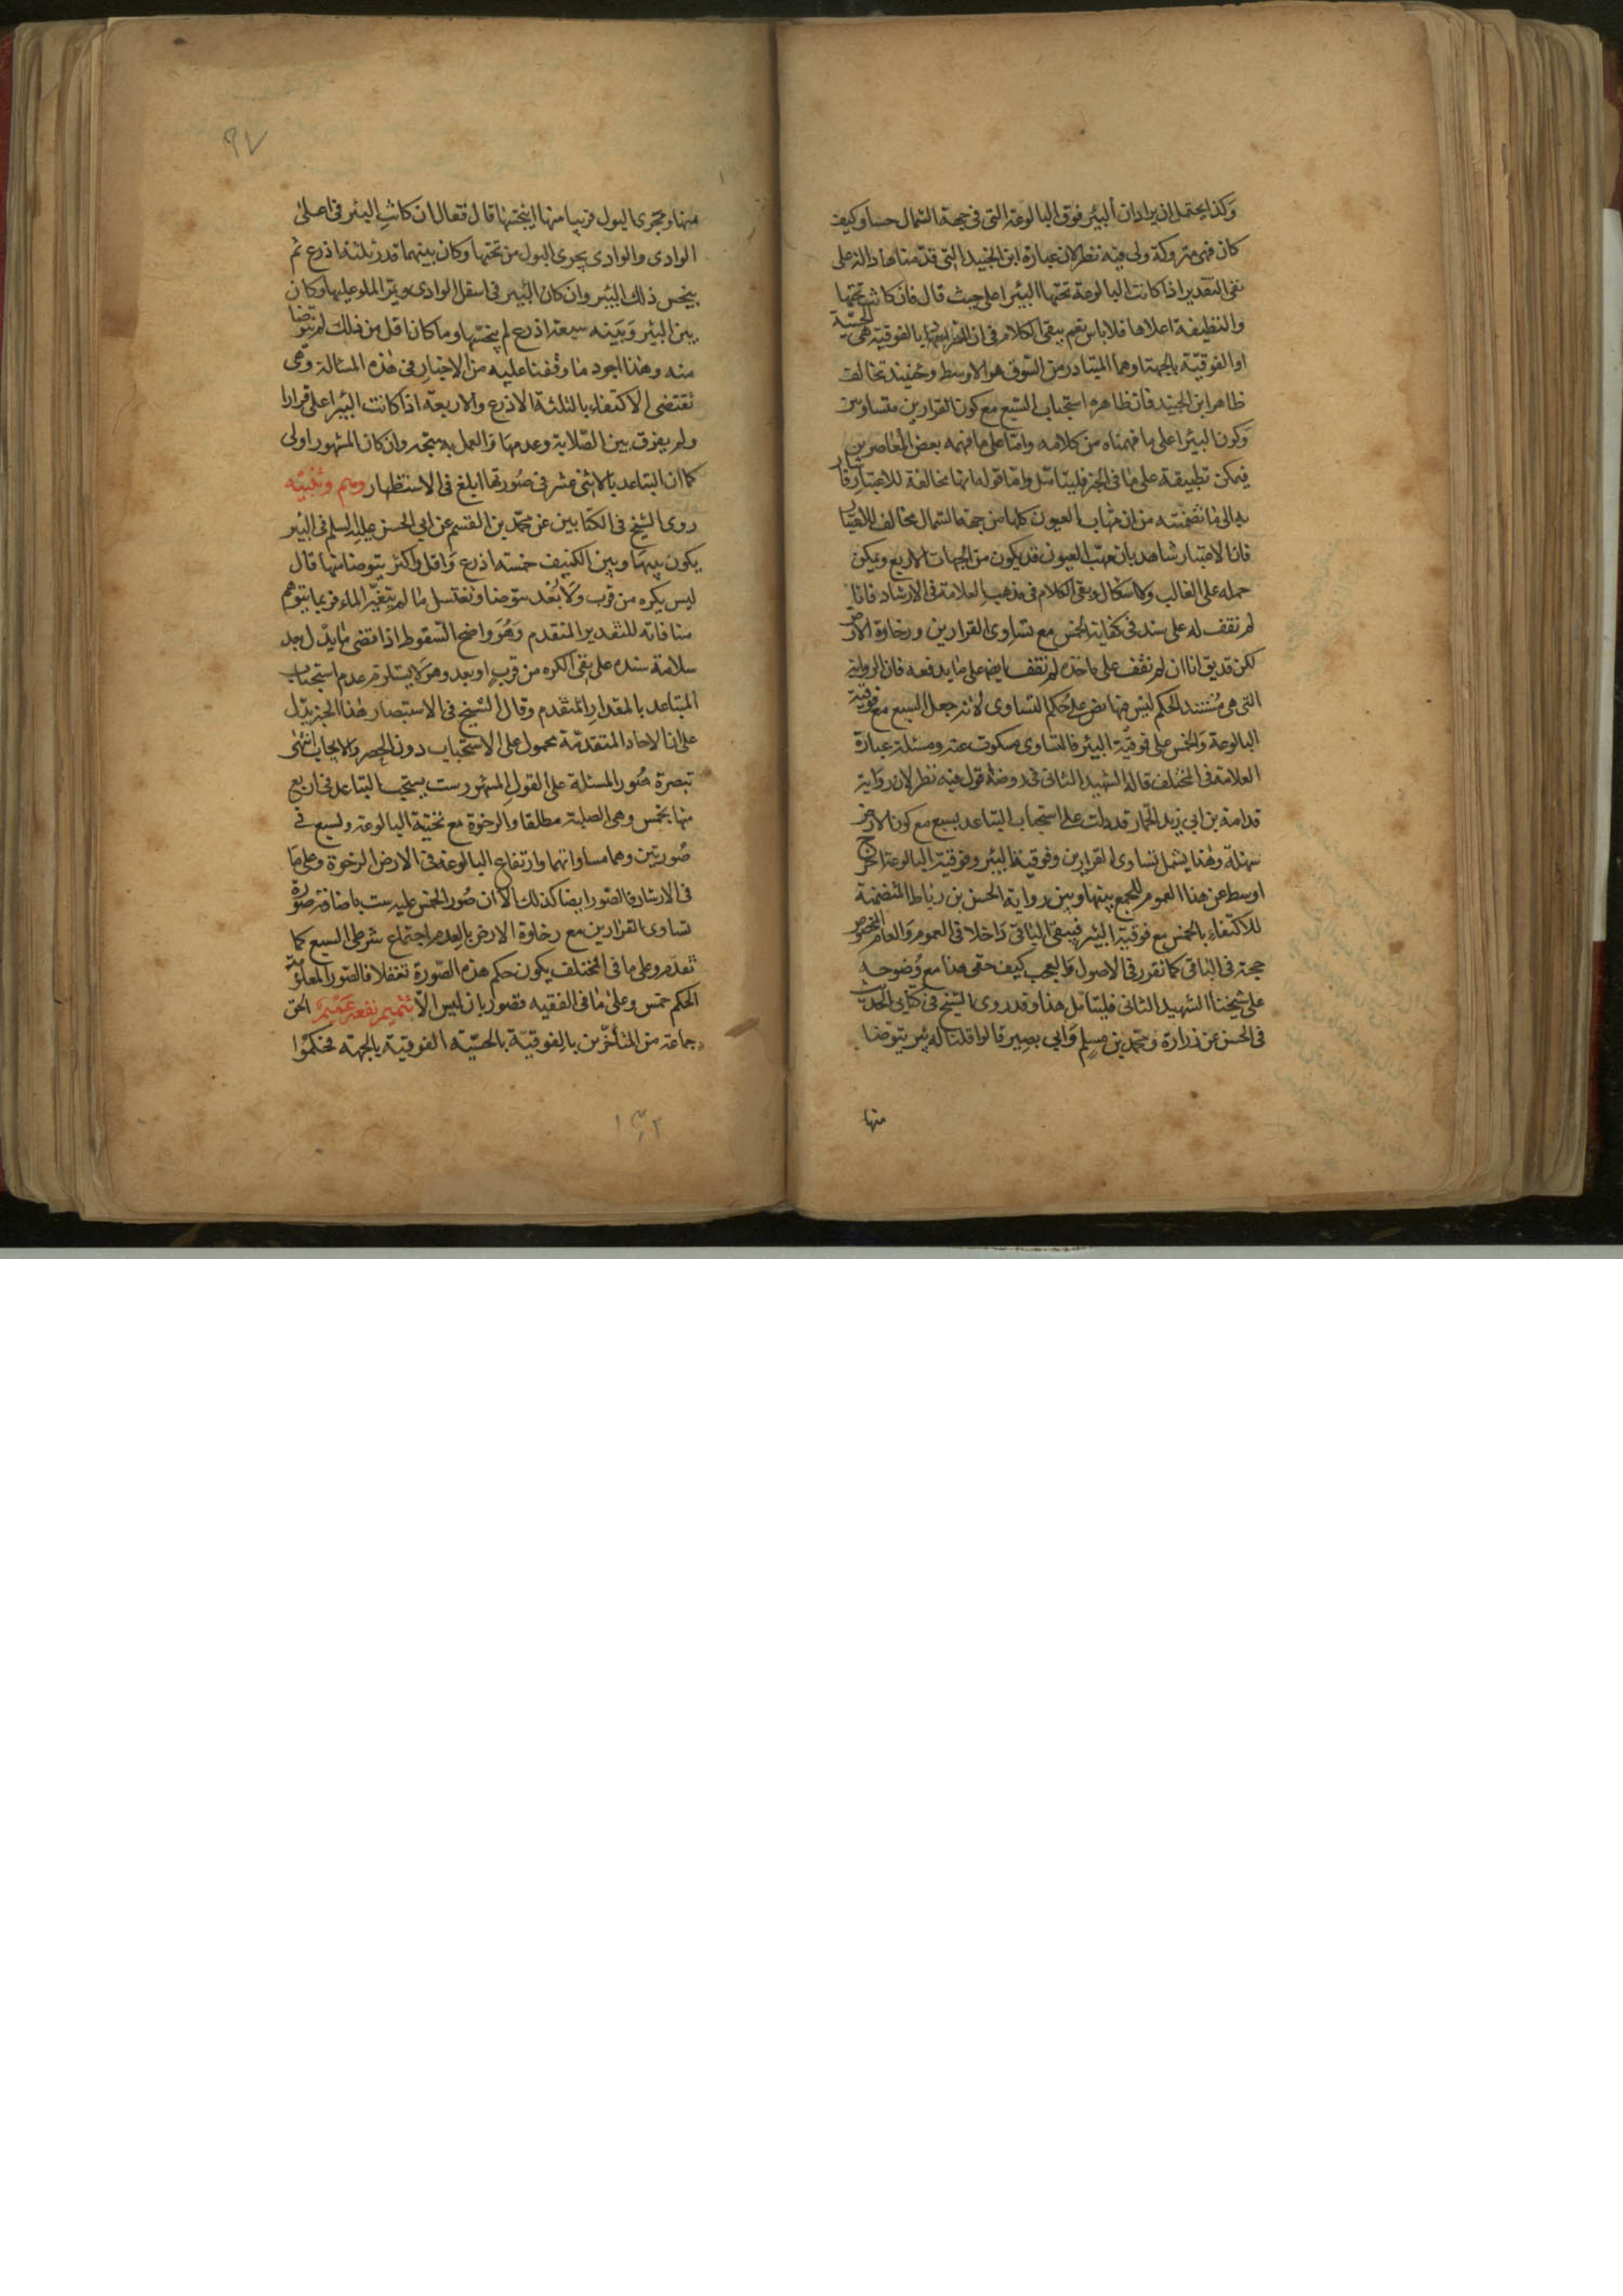 وكذا يحتمل ان يراد ان البئر فوق البالوعة التي في جهة الشمال حسا وكيف
كان فهي متروكة ولي فيه نظر لان عبارة ابن الجنيد التي قدمناها دالة على
نفي التقدير اذا كانت البالوعة تحتها البئر اعلى حيث قال فان كانت تحتها
والنظيفة اعلاها فلا باس نعم يبقى الكلام في ان المراد بالفوقية هي الحسية
او الفوقية بالجهة اوهما المتبادر من السوق هو الاوسط وحينئذ تخالف
ظاهر ابن الجنيد فان ظاهره استحباب السبع مع كون القرارين متساويين
وكون البئر اعلى ما فهمناه من كلامه واما على ما فهمه بعض المعاصرين
فيمكن تطبيقه على ما في الخبر فليتامل واما قوله انها مخالفة للاعتبار فاشار
به الى ما تضمنته من ان مهاب العيون كلها من جهة الشمال مخالف للاعتبار
فان الاعتبار شاهد بان مهب العيون قد يكون من الجهات الاربع ويمكن
حمله على الغالب ولا اشكال وبقى الكلام في مذهب العلامة في الارشاد فانا
لم نقف له على سند في كفاية الخمس مع تساوي القرارين ورخاوة الارض
لكن قد يق انا ان لم نقف على ماخذه لم نقف ايضا على ما يدفعه فان الرواية
التي هي مستند الحكم ليس فيها نص على حكم التساوي لانه جعل السبع مع فوقية
البالوعة والخمس على فوقية البئر فالتساوي مسكوت عنه ومسئلة عبارة
العلامة في المختلف قاله الشهيد الثاني في روضه قول فيه نظر لان رواية
قدامة بن ابي زيد الحمار قد دلت على استحباب التباعد بسبع مع كون الارض
سهلة وهذا يشمل تساوي القرارين وفوقية البئر وفوقية البالوعة اخرج
اوسط عن هذا العموم للجمع بينها وبين رواية الحسن بن رباط المتضمنة
للاكتفاء بالخمس مع فوقية البئر فيبقى الباقي داخلا في العموم والعام المخصوص
حجة في الباقي كما تقرر في الاصول والعجب كيف خفى هذا مع وضوحه
على شيخنا الشهيد الثاني فليتامل هذا وقد روى الشيخ في كتابي الحديث
في الحسن عن زرارة ومحمد بن مسلم وابي بصير قالوا قلنا له بئر يتوضا
منها
٩٧
منها ويجرى البول قريبا منها اينجسها قال فقال ان كانت البئر في اعلى
الوادي والوادي يجري البول من تحتها وكان بينهما قدر ثلثة اذرع ثم
ينجس ذلك البئر وان كان البئر في اسفل الوادي ويمر الماء عليها وكان
بين البئر وبينه سبعة اذرع لم ينجسها وما كان اقل من ذلك لم يتوضا
منه وهذا اجود ما وقفنا عليه من الاخبار في هذه المسالة وهي
تقتضي الاكتفاء بالثلثة الاذرع والاربعة اذا كانت البئر اعلى قرارا
ولم يفرق بين الصلابة وعدمها والعمل به متجه وان كان المشهور اولى
كما ان التباعد بالاثنى عشر في صورتها ابلغ في الاستظهار وهم وتنبيه
روى الشيخ في الكتابين عن محمد بن القسم عن ابي الحسن عليه السلم في البئر
يكون بينها وبين الكنيف خمسة اذرع واقل واكثر يتوضا منها قال
ليس يكره من قرب ولا بعد يتوضا وتغتسل ما لم يتغير الماء فربما يتوهم
منافاته للتقدير المتقدم وهو واضح السقوط اذا قضى ما يدل بعد
سلامة سنده على نفي الكره من قرب او بعد وهو لا يستلزم عدم استحباب
التباعد بالمقدار المتقدم وقال الشيخ في الاستبصار هذا الخبر يدل
على ان الاخبار المتقدمة محمول على الاستحباب دون الحصر والايجاب انتهى
تبصرة صور المسئلة على القول المشهور ست يستحب التباعد في اربع
منها بخمس وهي الصلبة مطلقا والرخوة مع تحتية البالوعة وبسبع في
صورتين وهما مساواتهما وارتفاع البالوعة في الارض الرخوة وعلى ما
في الارشاد فالصور ايضا كذلك الا ان صور الخمس عليه ست باضافة صورة
تساوي القرارين مع رخاوة الارض بالعدم اجتماع شرطي السبع كما
تقدم وعلى ما في المختلف يكون حكم هذه الصورة تغفلا فالصور المعلومة
الحكم خمس وعلى ما في الفقيه فصورتان ليس الا تتميم نفعه عميم الحق
جماعة من المتأخرين بالفوقية بالحسية الفوقية بالجهة فحكموا
١٣٢